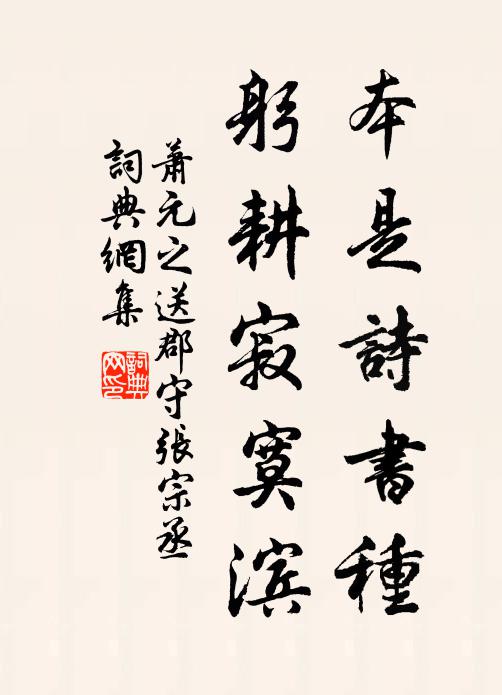 本是詩書種
躬耕寂寞滨
蕭元之送郡守張宗丞
詞典網集
詞典
网印